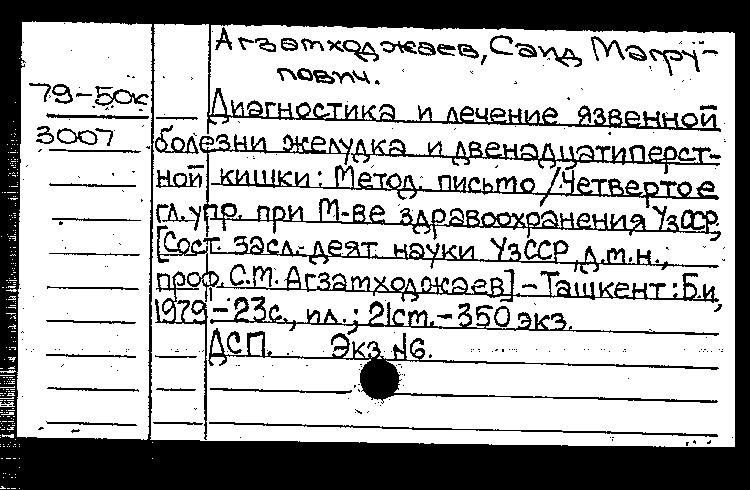 Агзатходжаев, Саид Магру-
пович.
79-50к
Диагностика и лечение язвенной
3007
болезни желудка и двенадцатиперст-
ной кишки: Метод. письмо / Четвертое
гл. упр. при М-ве здравоохранения УзССР,
[Сост. засл. деят. науки УзССР, д.м.н.,
проф. С.М. Агзатходжаев]. - Ташкент: Б.и,
1979. - 23с., ил.; 21см. - 350 экз.
ДСП. Экз N6.